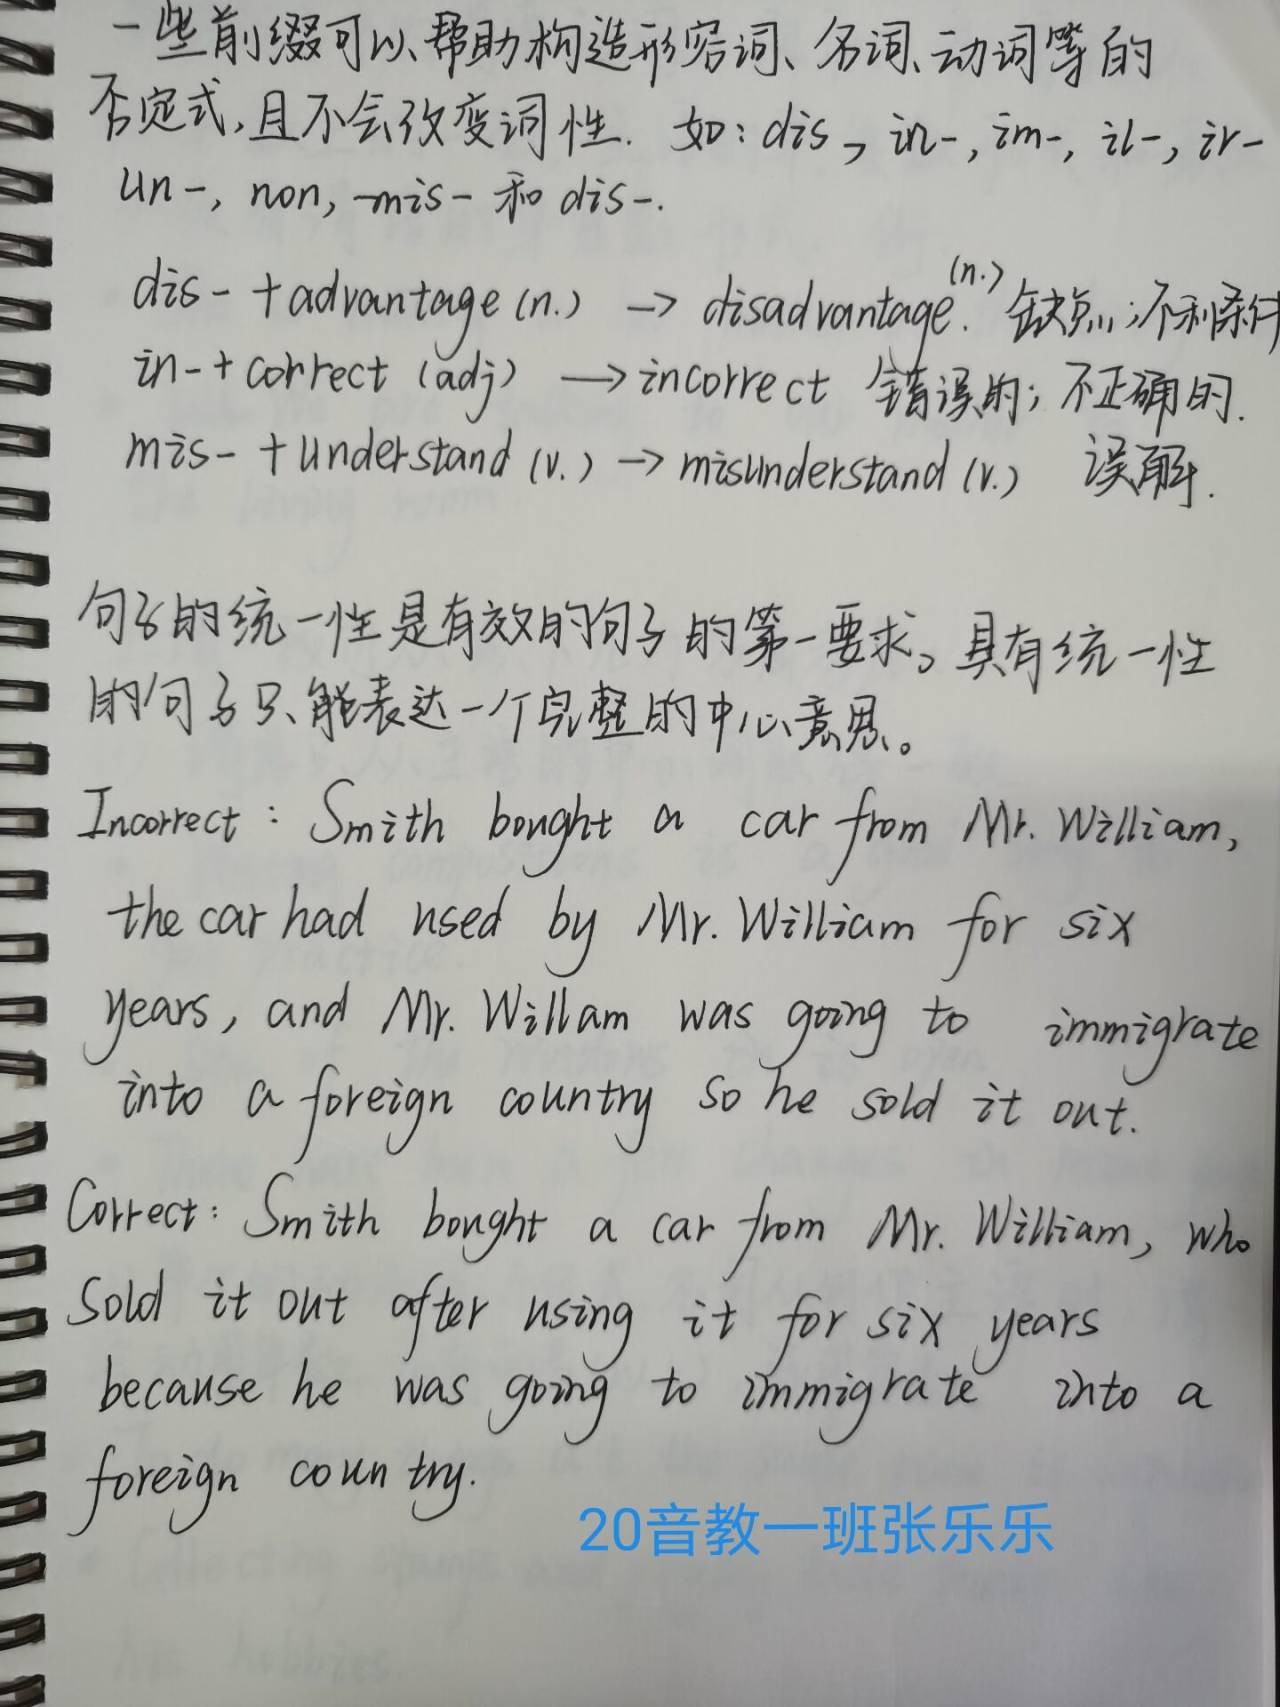 一些前缀可以帮助构造形容词、名词、动词等的
否定式,且不会改变词性. 如: dis, in-, im-, il-, ir-
un-, non, -mis- 和 dis-.
dis- + advantage (n.) → disadvantage. (n.) 缺点;不利条件
in- + correct (adj) → incorrect 错误的; 不正确的.
mis- + understand (v.) → misunderstand (v.) 误解.
句子的统一性是有效的句子的第一要求。具有统一性
的句子只能表达一个完整的中心意思。
Incorrect: Smith bought a car from Mr. William,
the car had used by Mr. William for six
years, and Mr. Willam was going to immigrate
into a foreign country so he sold it out.
Correct: Smith bought a car from Mr. William, who
sold it out after using it for six years
because he was going to immigrate into a
foreign country.
20音教一班张乐乐